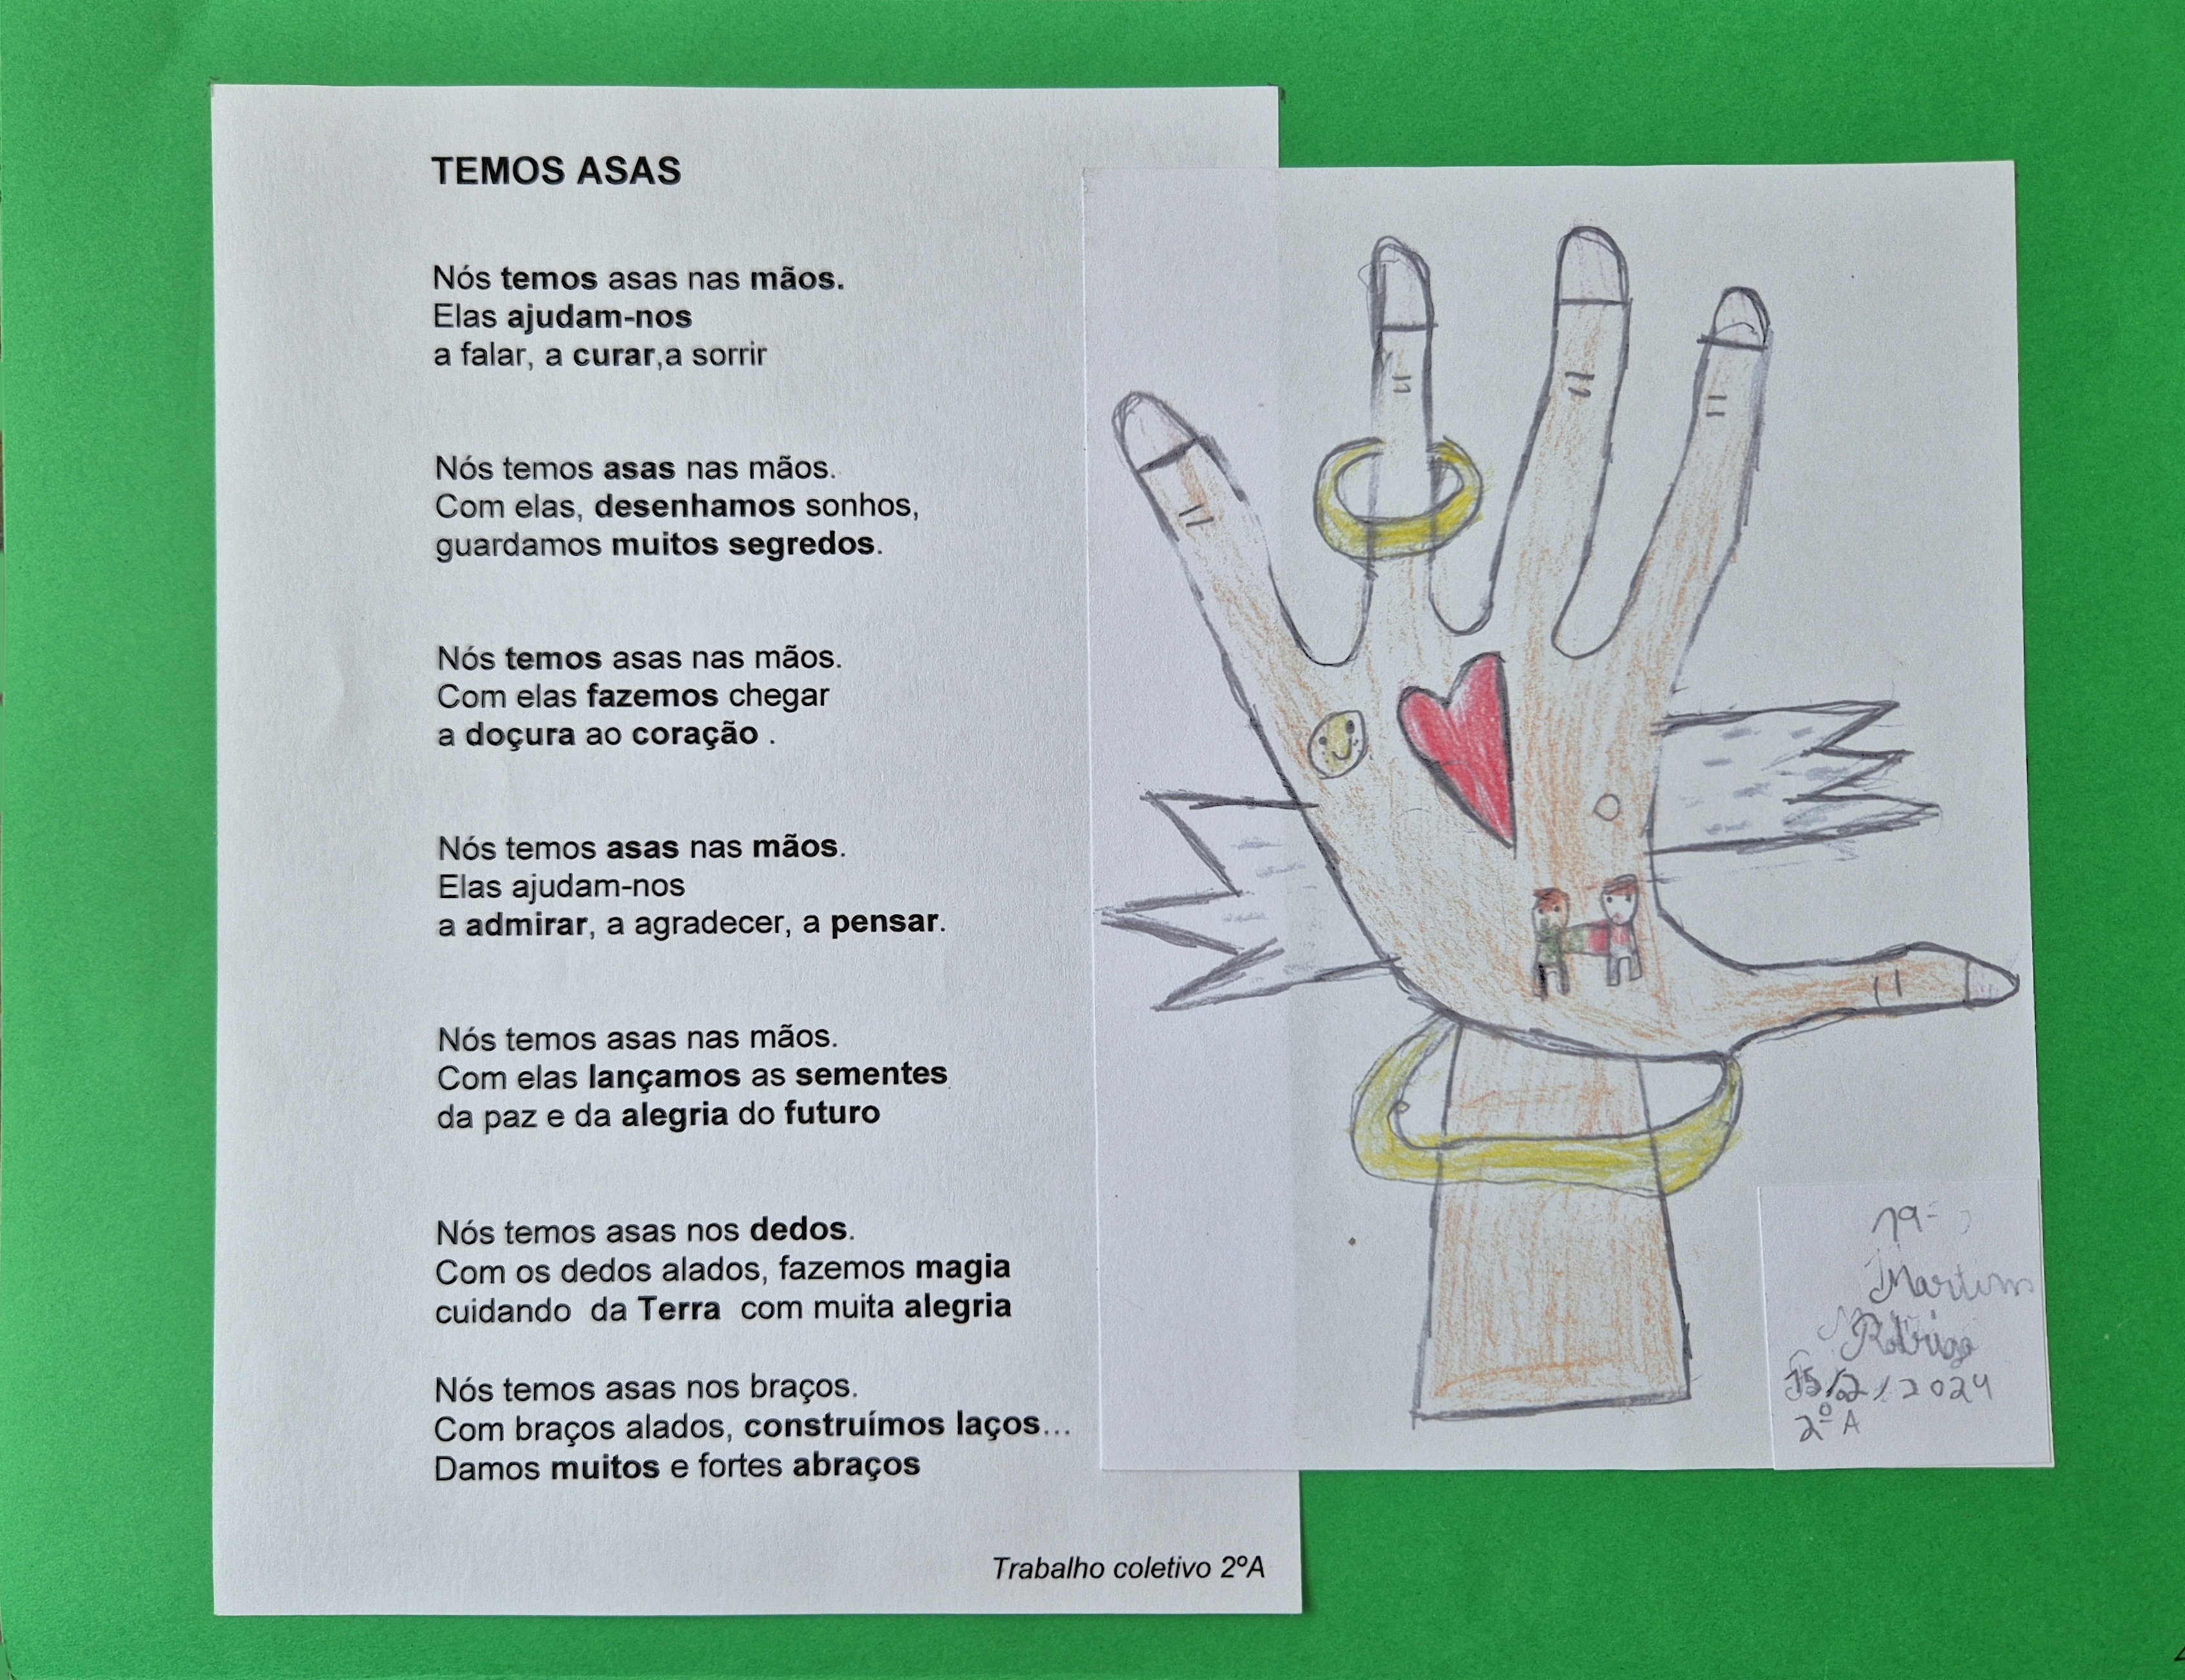 TEMOS ASAS
Nós temos asas nas mãos.
Elas ajudam-nos
a falar, a curar,a sorrir
Nós temos asas nas mãos.
Com elas, desenhamos sonhos,
guardamos muitos segredos.
Nós temos asas nas mãos.
Com elas fazemos chegar
a doçura ao coração .
Nós temos asas nas mãos.
Elas ajudam-nos
a admirar, a agradecer, a pensar.
Nós temos asas nas mãos.
Com elas lançamos as sementes
da paz e da alegria do futuro
Nós temos asas nos dedos.
Com os dedos alados, fazemos magia
cuidando da Terra com muita alegria
Nós temos asas nos braços.
Com braços alados, construímos laços...
Damos muitos e fortes abraços
Trabalho coletivo 2ºA
Martim
Rodrigo
15/2/2024
2º A